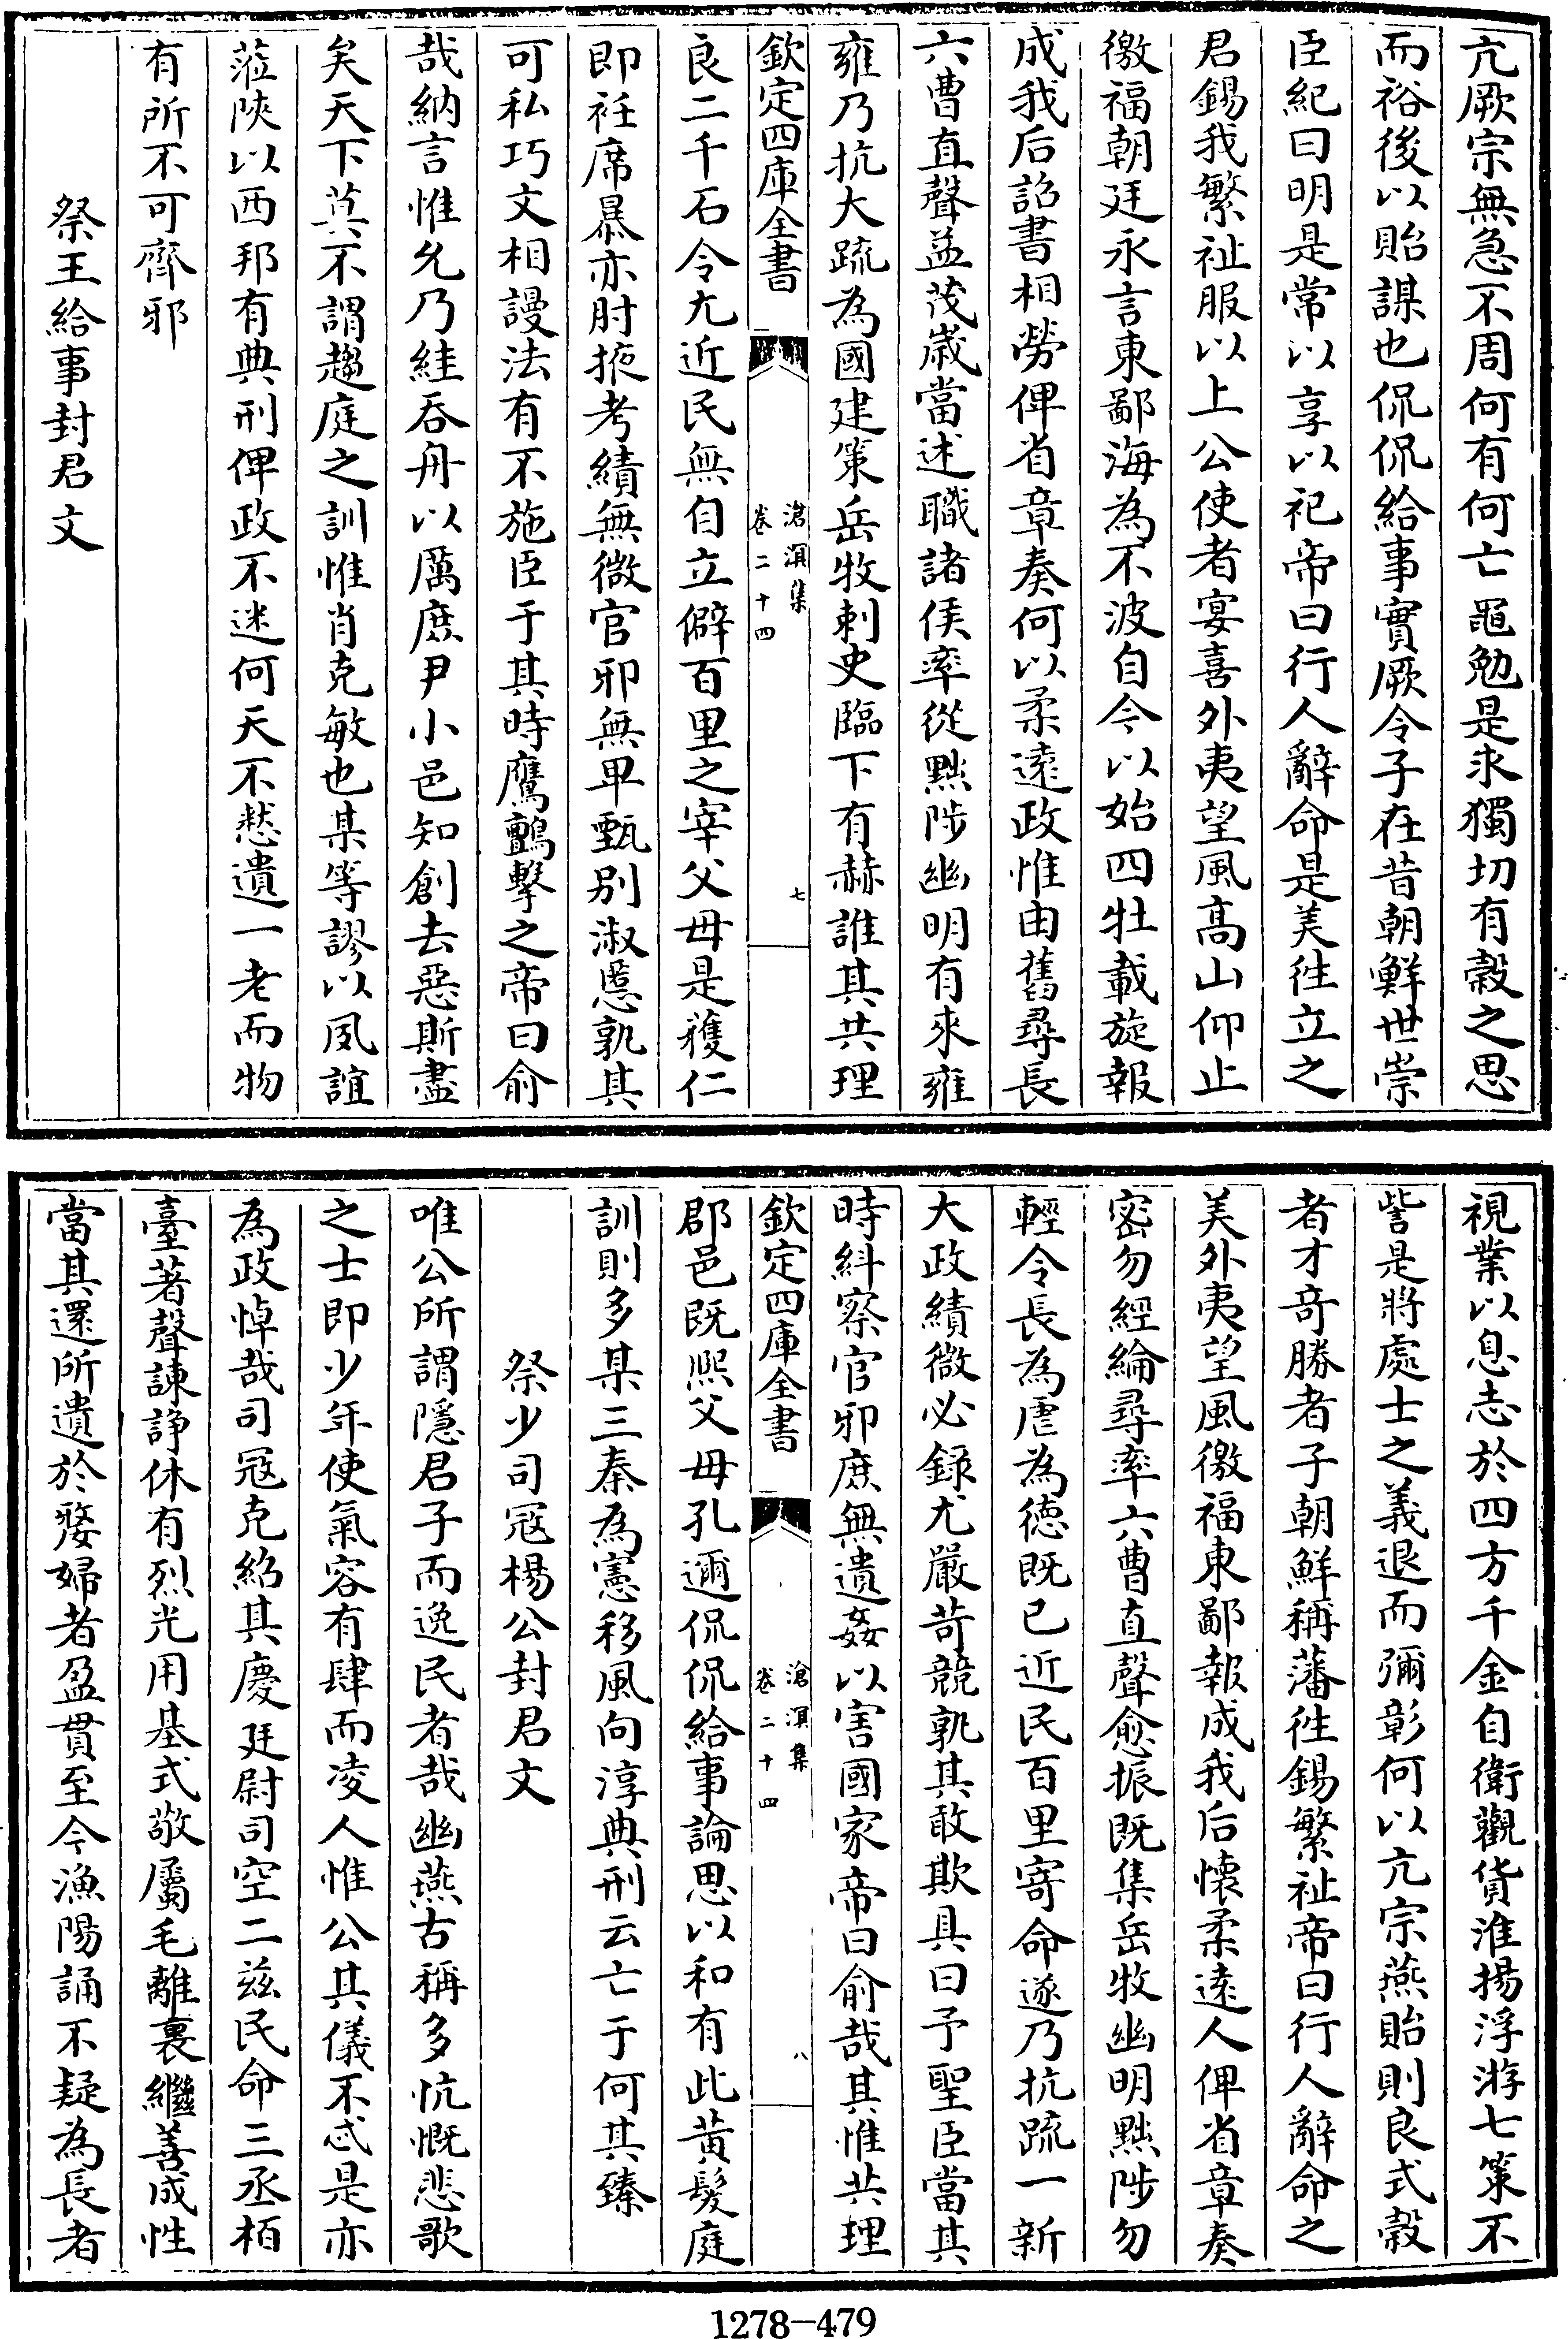 亢厥宗無急不周何有何亡黽勉是求獨切有榖之思
而裕後以貽謀也侃侃給事實厥令子在昔朝鮮世崇
臣紀曰明是常以享以祀帝曰行人辭命是美往立之
君錫我繁祉服以上公使者宴喜外夷望風高山仰止
徼福朝廷永言東鄙海為不波自今以始四牡載旋報
成我后詔書相勞俾省章奏何以柔遠政惟由舊尋長
六曹直聲益茂嵗當述職諸侯率從黜陟幽明有來雍
雍乃抗大疏為國建策岳牧刺史臨下有赫誰其共理
欽定四庫全書
滄溟集
卷二十四
七
良二千石令尤近民無自立僻百里之宰父母是獲仁
即袵席暴亦肘掖考績無微官邪無卑甄别淑慝孰其
可私巧文相謾法有不施臣于其時鷹鸇擊之帝曰俞
哉納言惟允乃絓吞舟以厲庶尹小邑知創去惡斯盡
矣天下莫不謂趨庭之訓惟肖克敏也某等謬以夙誼
蒞陜以西邦有典刑俾政不迷何天不憖遺一老而物
有所不可齊邪
祭王給事封君文
視業以息志於四方千金自衛觀貨淮揚浮游七策不
訾是將處士之義退而彌彰何以亢宗燕貽則良式榖
者才竒勝者子朝鮮稱藩徃錫繁祉帝曰行人辭命之
美外夷望風徼福東鄙報成我后懷柔遠人俾省章奏
密勿經綸尋率六曹直聲愈振既集岳牧幽明黜陟勿
輕令長為虐為徳既已近民百里寄命遂乃抗疏一新
大政績微必録尤嚴苛競孰其敢欺具曰予聖臣當其
時糾察官邪庶無遺姦以害國家帝曰俞哉其惟共理
欽定四庫全書
滄溟集
卷二十四
八
郡邑既熙父母孔邇侃侃給事論思以和有此黄髮庭
訓則多某三秦為憲移風向淳典刑云亡于何其臻
祭少司冦楊公封君文
唯公所謂隱君子而逸民者哉幽燕古稱多忼慨悲歌
之士即少年使氣容有肆而凌人惟公其儀不忒是亦
為政悼哉司冦克紹其慶廷尉司空二兹民命三丞栢
臺著聲諫諍休有烈光用基式敬屬毛離裏繼善成性
當其還所遺於嫠婦者盈貫至今漁陽誦不疑為長者
1278—479